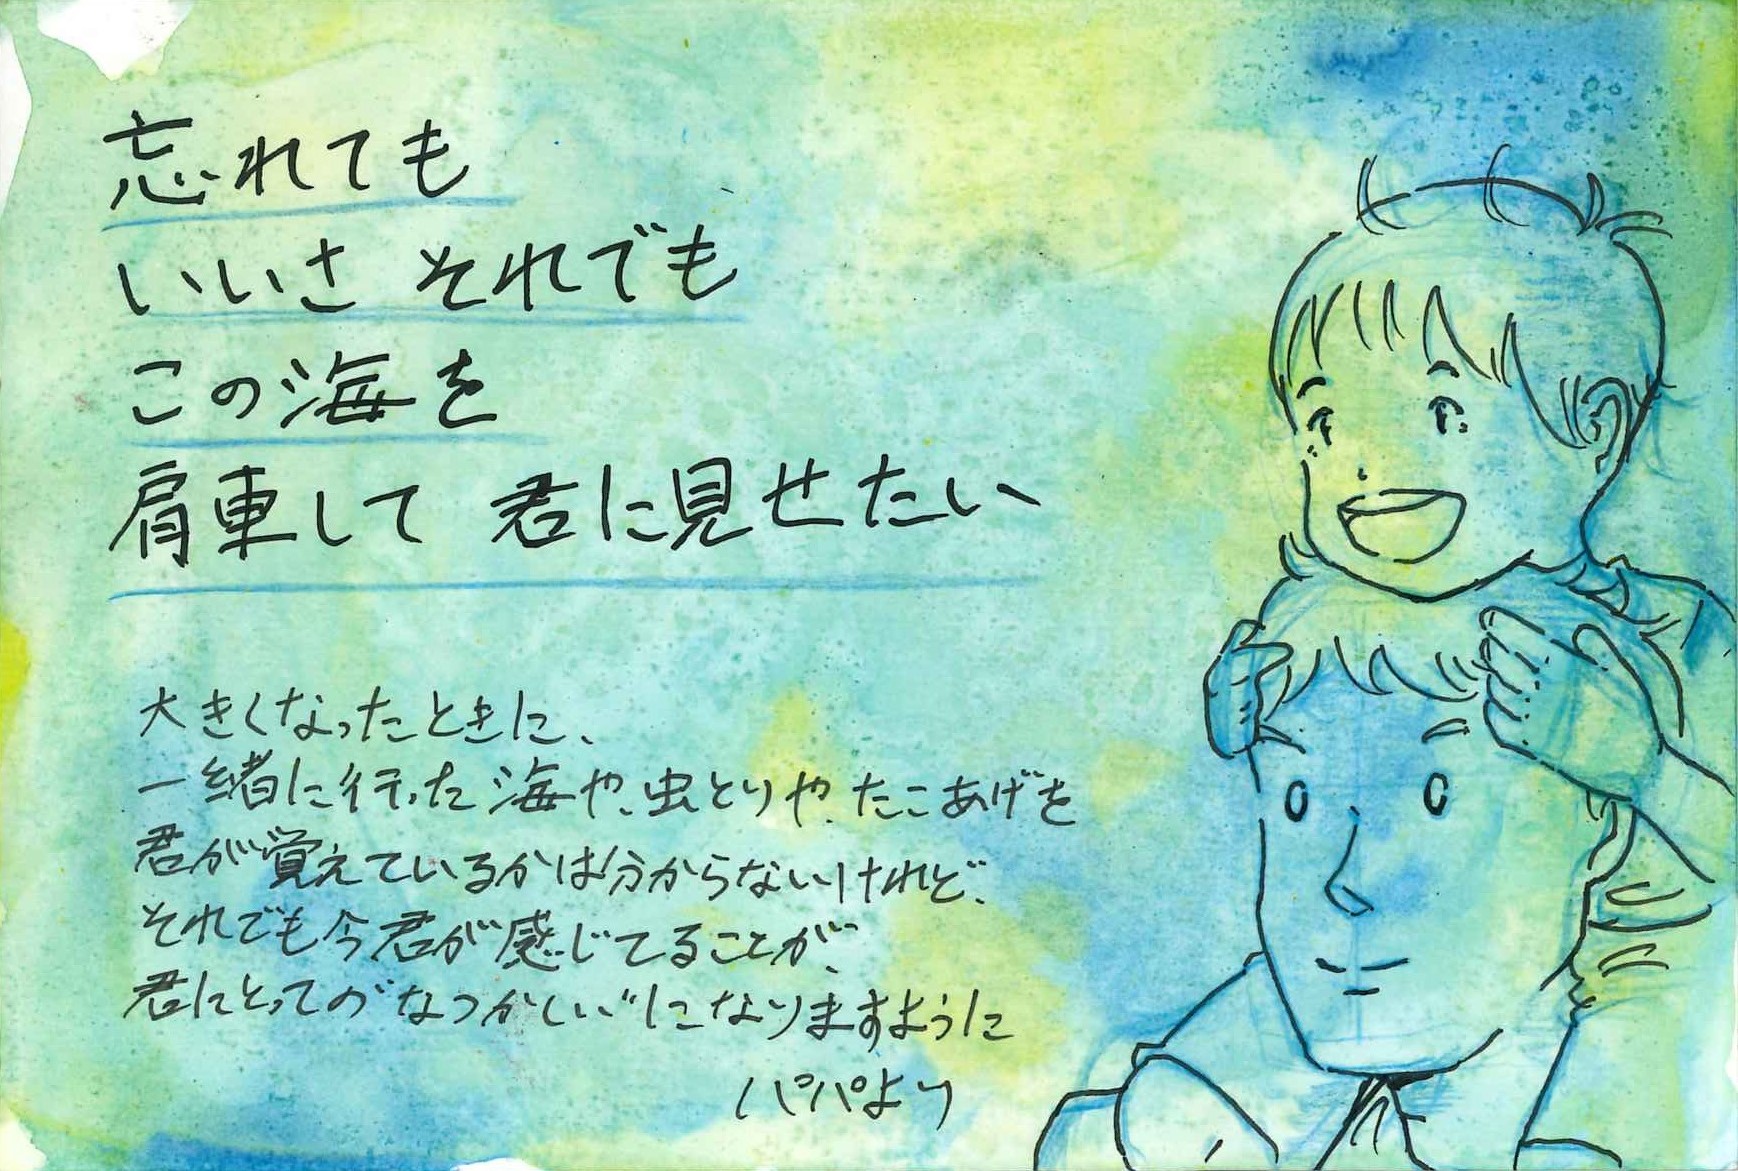 忘れても
いいさ それでも
この海を
肩車して 君に見せたい
大きくなったときに、
一緒に行った海や、虫とりや、たこあげを
君が覚えているかは分からないけれど、
それでも今君が感じてることが、
君にとっての“なつかしい”になりますように
パパより